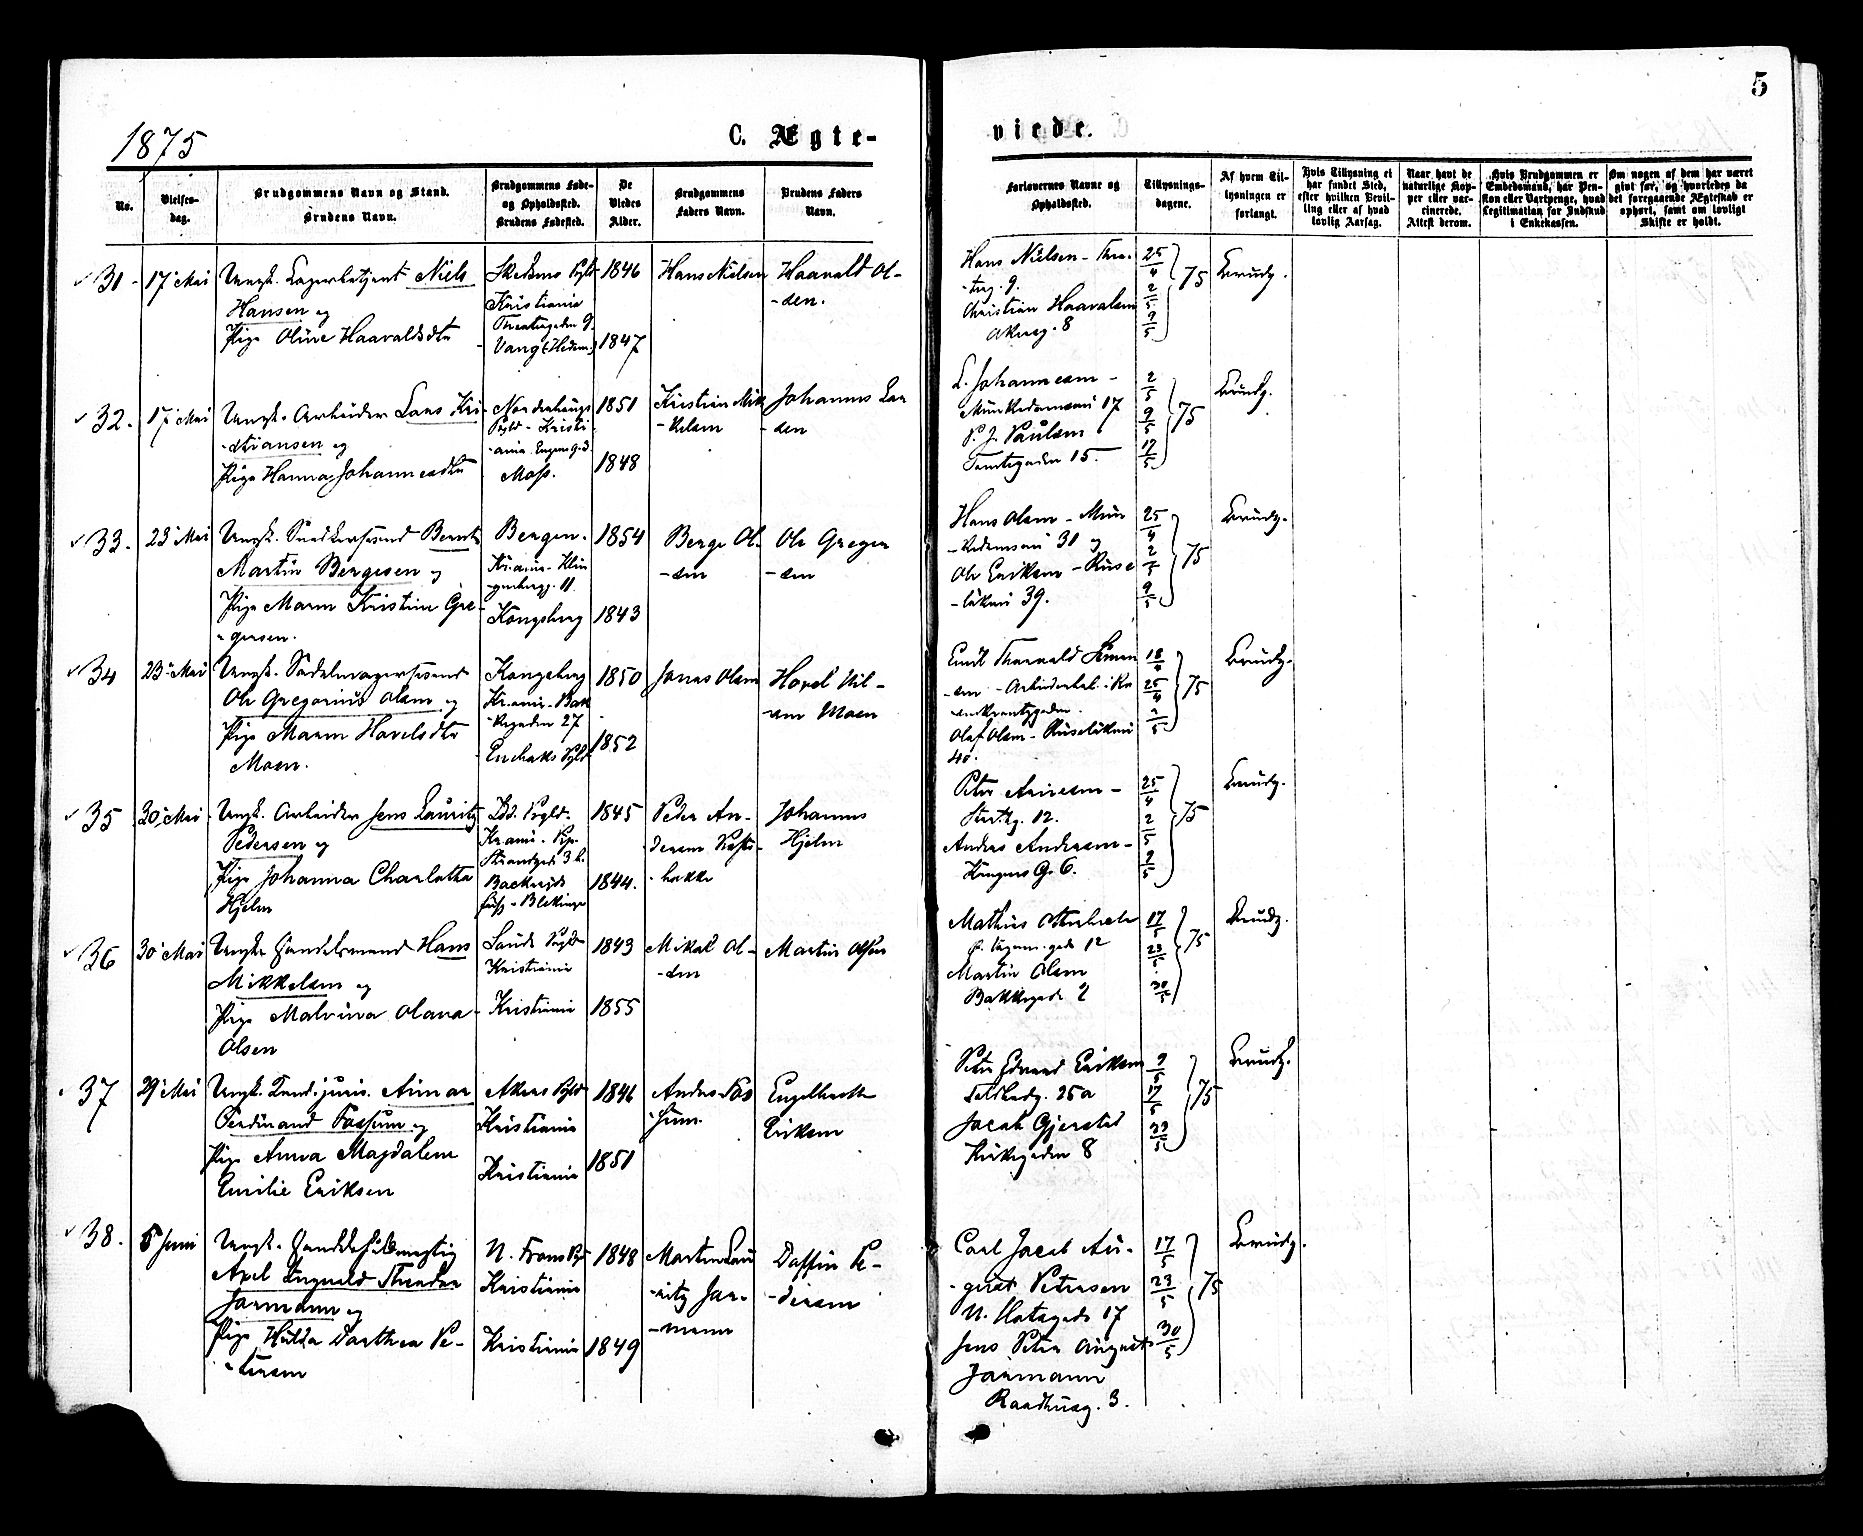 5
1875
C. Ægte-
viede.
No.
Vielses-
dag.
Brudgommens Navn og Stand.
Brudens Navn.
Brudgommens Føde-
og Opholdssted.
Brudens Fødested.
De
Viedes
Alder.
Brudgommens
Faders Navn.
Brudens Faders
Navn.
Forlovernes Navne og
Opholdssted.
Tillysnings-
dagene.
Af hvem Til-
lysningen er
forlangt.
Hvis Tillysning ei
har fundet Sted,
efter hvilken Bevil-
ling eller af hvad
lovlig Aarsag.
Naar havt de
naturlige Kop-
per eller vac-
cinerede.
Attest derom.
Hvis Brudgommen er
Embedsmand, har Pen-
sion eller Vartpenge, hvad
Legitimation for Indskud
i Enkekassen.
Om nogen af dem har været
givt før, og hvorledes da
det foregaaende Ægteskab er
ophørt, samt om lovligt
Skifte er holdt.
31. 17 Mai
Ungk. Lagerbetjent Niels
Hansen og
Pige Oline Haavaldsdtr
Kristiania
Theatergaden 9.
Vang (Hedem.)
1846
1847
Hans Nielsen
Haavald Ol-
-sen.
Hans Nielsen - Thea-
-terg. 9.
Christian Haavalsen
Akersg. 8
25/4
2/5
9/5
75
Brudg.
32. 17 Mai
Ungk. Arbeider Lars Kri-
-stiansen og
Pige Hanna Johannesdtr
Norderhougs
Pgld - Kristi-
Moss.
1851
1848
Kristian Mik-
-kelsen
Johannes Lar
-sen
L. Johannesen -
Munkedamsvei 17
P. J. Paulsen
Tomtegaden 15.
2/5
9/5
17/5
75
Brudg.
33. 23 Mai
Ungk. Snedkersvend Bernt
Martin Bergesen og
Pige Maren Kristine Gre-
-gersen.
Bergen.
Kr.ania - Klin
-genbergg. 11.
Kongsberg
1854
1843
Berge Ol-
-sen
Ole Greger
-sen
Hans Olsen - Mun
-kedamsvei 31 og
Ole Eriksen - Ruse
-løkvei 39.
25/4
2/5
9/5
75
Brudg.
34 23 Mai
Ungk. Sadelmagersvend
Ole Gregorius Olsen og
Pige Maren Havelsdtr
Moen.
Kongsberg
Kr.ania - Bak
-kegaden 27
Enebaks Pgld
1850
1852
Jonas Olsen
Havel Nil-
-sen Moen
Emil Thorvald Simen
-sen
Olaf Olsen - Ruseløkvei
40.
18/4
25/4
2/5
75
Brudg.
35 30 Mai
Ungk. Arbeider Jens Lauritz
Pedersen og
Pige Johanna Charlotta
Hjelm
Kr.ania - Pip.
Strandgade 3 b.
- Blekinge
1845
1844.
Peder An-
Johannes
Hjelm
Anders Andersen -
25/4
2/5
9/5
75
Brudg.
36 30 Mai
Ungk. Handelsmand Hans
Mikkelsen og
Pige Malvina Olava
Olsen
Kristiania
Kristiania
1843
1855
Mikal Ol-
-sen
Martin Olsen
Martin Olsen
Bakkegade 2
17/5
23/5
30/5
75
Brudg.
37 29 Mai
Ungk. Cand. juris. Aimar
Ferdinand Fossum og
Pige Anna Magdalene
Emilie Eriksen
Akers Pgld
Kristiania
Kristiania
1846
1851
Anders Fos
-sum.
Engelbrecht
Eriksen
Peter Edvard Eriksen
Jacob Gjersted
Kirkegaden 8
9/5
17/5
23/5
75
Brudg.
38. 5 Juni
Ungk. Handelsfuldmægtig
Axel Ingvald Theodor
Jarmann og
Pige Hulda Dorthea Pe-
-tersen
Kristiania
Kristiania
1848
1849
Morten Lau
-ritz Jar-
-mann
Carl Jacob Au-
-gust Petersen
Jens Peter August
Jarmann
Raadhusg. 3.
17/5
23/5
30/5
75
Brudg.